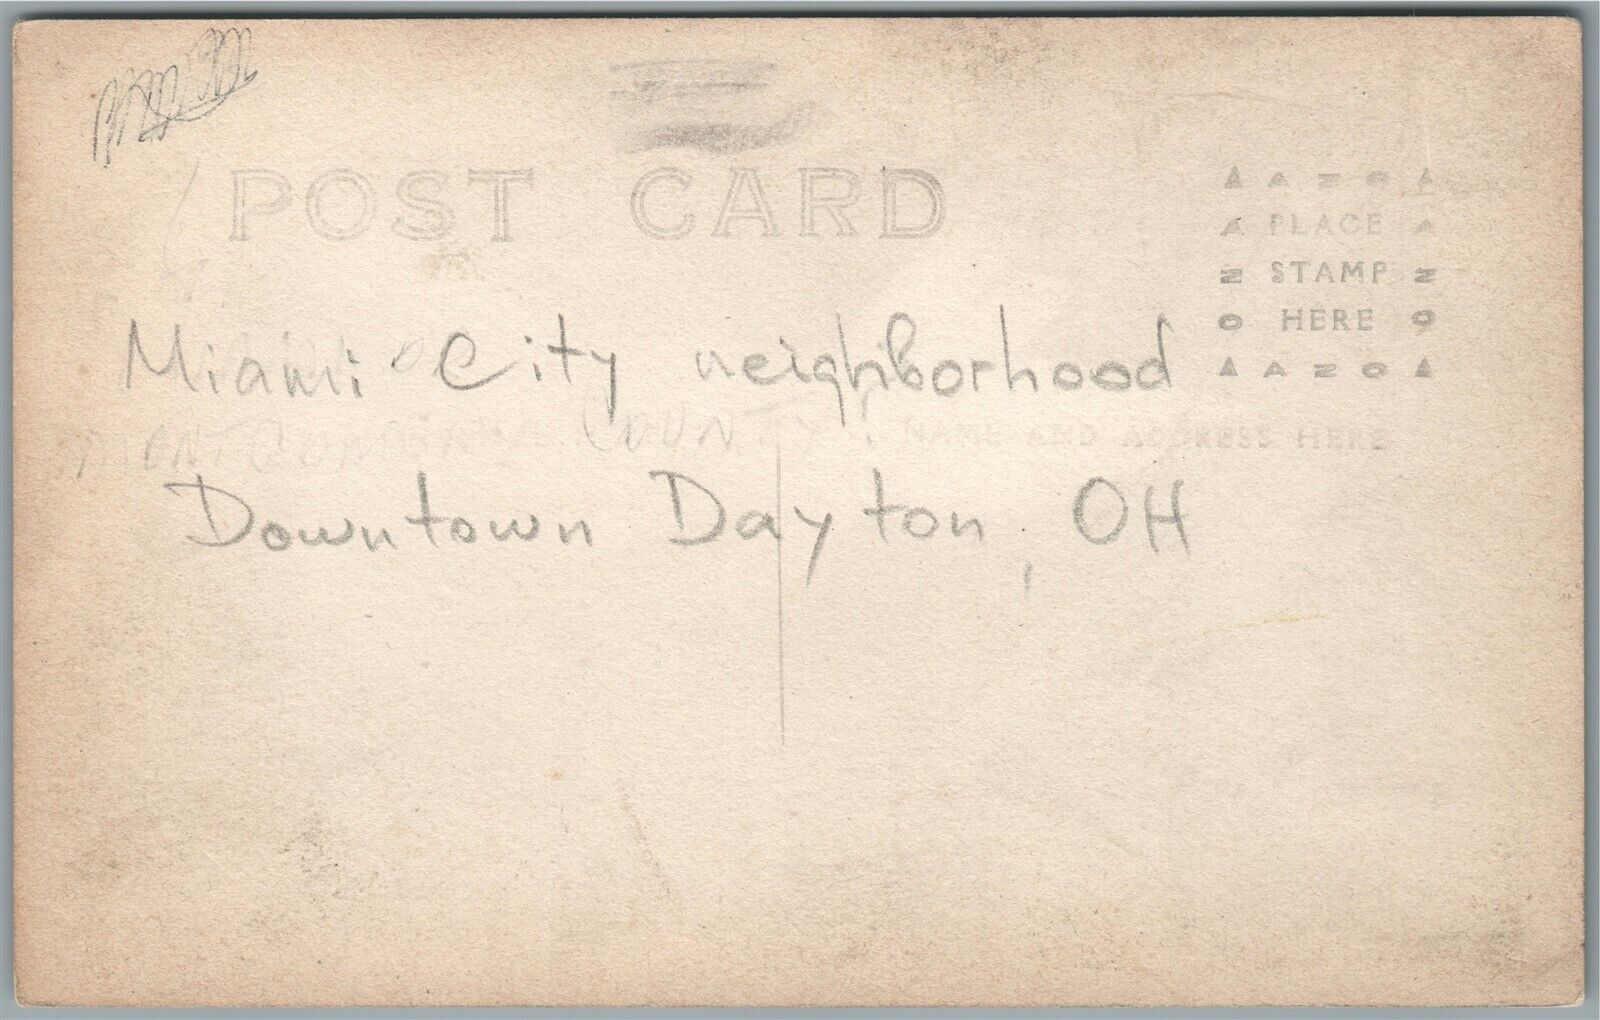 POST CARD
AZO
PLACE
STAMP
HERE
AZO
Miami City neighborhood
COUNTY
NAME AND ADDRESS HERE
Downtown Dayton, OH